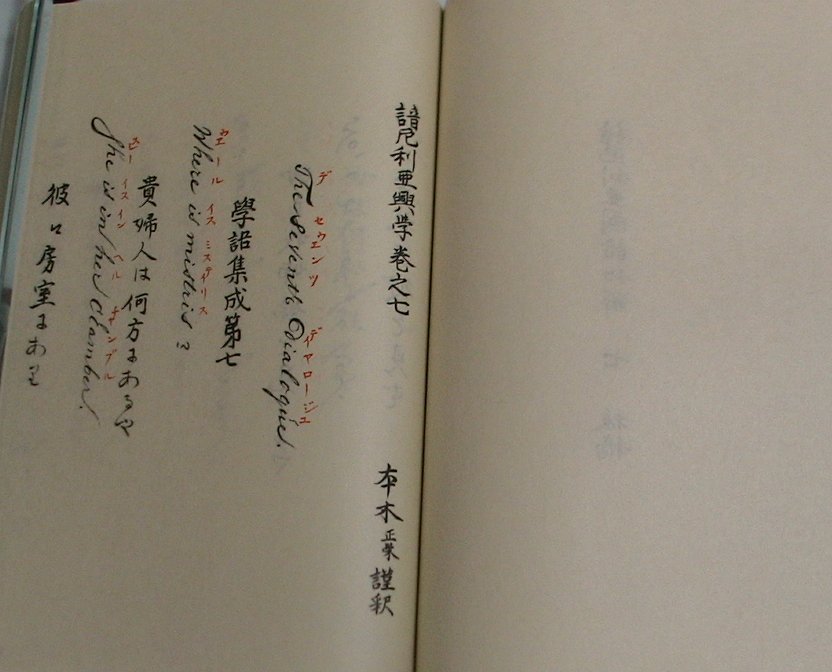 諳厄利亜興学巻之七
本木正栄謹釈
デ セウエンツ デイヤロージュ
The Seventh Dialogue.
學語集成第七
ウエール イス ミステイリス
Where is mistris ?
貴婦人は何方にあるや
シー イス イン ヘル チャンブル
She is in her Chamber.
彼ハ房室にあり